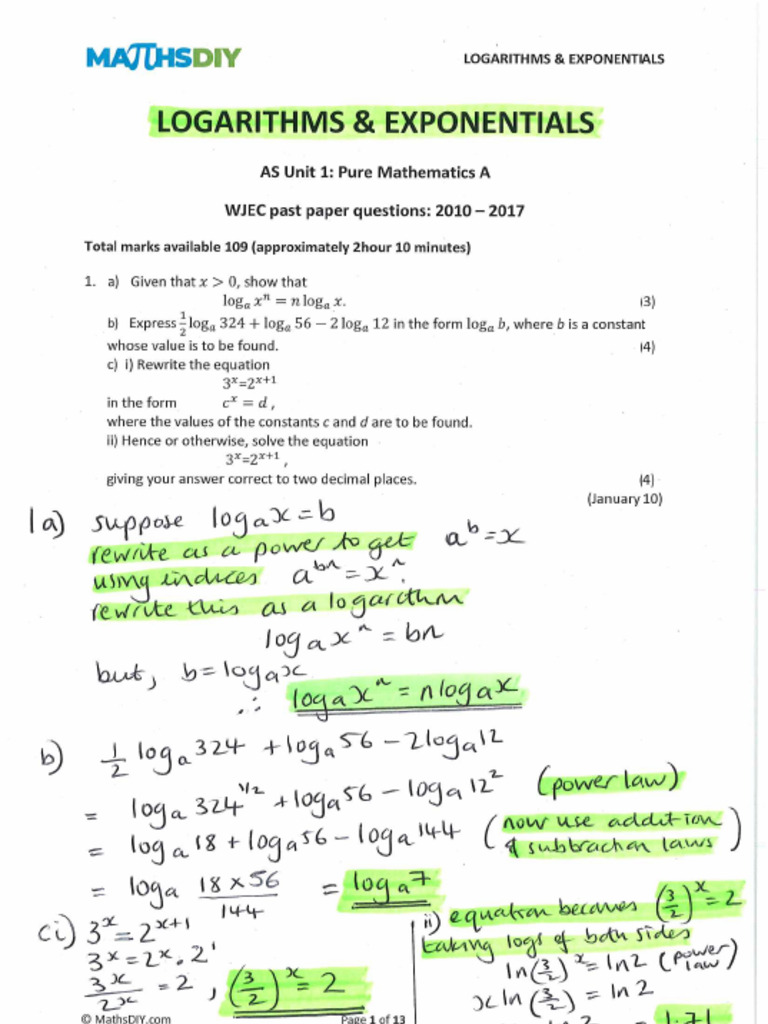 MATHSDIY
LOGARITHMS & EXPONENTIALS
LOGARITHMS & EXPONENTIALS
AS Unit 1: Pure Mathematics A
WJEC past paper questions: 2010 – 2017
Total marks available 109 (approximately 2hour 10 minutes)
1. a) Given that x > 0, show that
logₐ xⁿ = n logₐ x. (3)
b) Express ½ logₐ 324 + logₐ 56 − 2 logₐ 12 in the form logₐ b, where b is a constant
whose value is to be found. (4)
c) i) Rewrite the equation
3^x=2^(x+1)
in the form c^x = d ,
where the values of the constants c and d are to be found.
ii) Hence or otherwise, solve the equation
3^x=2^(x+1) ,
giving your answer correct to two decimal places. (4)
(January 10)
1a) suppose logₐx = b
rewrite as a power to get a^b = x
using indices a^(bn) = x^n.
rewrite this as a logarithm
logₐxⁿ = bn
but, b = logₐx
∴ logₐxⁿ = nlogₐx
b) ½ logₐ324 + logₐ56 − 2logₐ12
= logₐ324^(1/2) + logₐ56 − logₐ12² (power law)
= logₐ18 + logₐ56 − logₐ144 (now use addition & subtraction laws)
= logₐ (18 × 56)/144 = logₐ7
ci) 3^x = 2^(x+1)
3^x = 2^x . 2^1
3^x/2^x = 2 , (3/2)^x = 2
ii) equation becomes (3/2)^x = 2
taking logs of both sides
ln(3/2)^x = ln2 (power law)
x ln(3/2) = ln 2
1.71
© MathsDIY.com Page 1 of 13